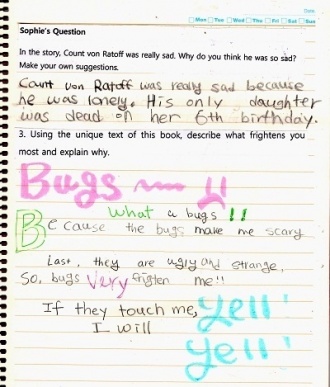 Date
Mon Tue Wed Thu Fri Sat Sun
Sophie's Question
In the story, Count von Ratoff was really sad. Why do you think he was so sad?
Make your own suggestions.
Count von Ratoff was really sad because
he was lonely. His only daughter
was dead on her 6th birthday.
3. Using the unique text of this book, describe what frightens you
most and explain why.
Bugs
What a bugs !!
Because the bugs make me scary
Last, they are ugly and strange,
So, bugs very frigten me!!
If they touch me,
I will
yell!
yell!